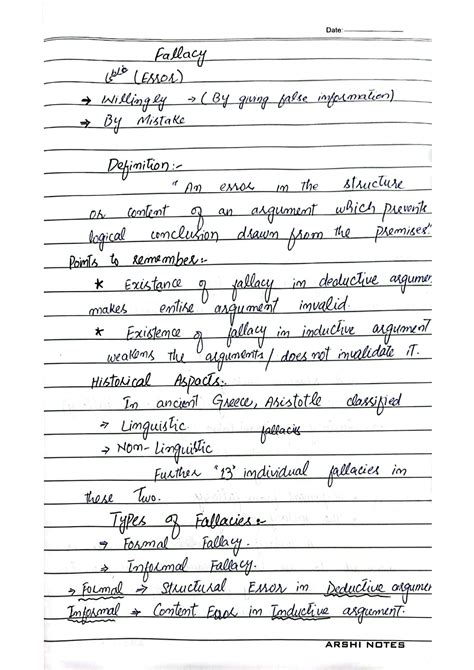 Date:
Fallacy
(Error)
→ Willingly → (By giving false information)
→ By Mistake
Definition:-
"An error in the structure
or content of an argument which prevents
logical conclusion drawn from the premises"
Points to remember:-
* Existance of fallacy in deductive argumen
makes entire argument invalid.
* Existence of fallacy in inductive argument
weakens the arguments/does not invalidate it.
Historical Aspects:-
In ancient Greece, Aristotle classified
→ Linguistic fallacies
→ Non-Linguistic
Further "13" individual fallacies in
these Two.
Types of Fallacies:-
→ Formal Fallacy.
→ Informal Fallacy.
→ Formal → Structural Error in Deductive argumen
Informal → Content Error in Inductive argument.
ARSHI NOTES